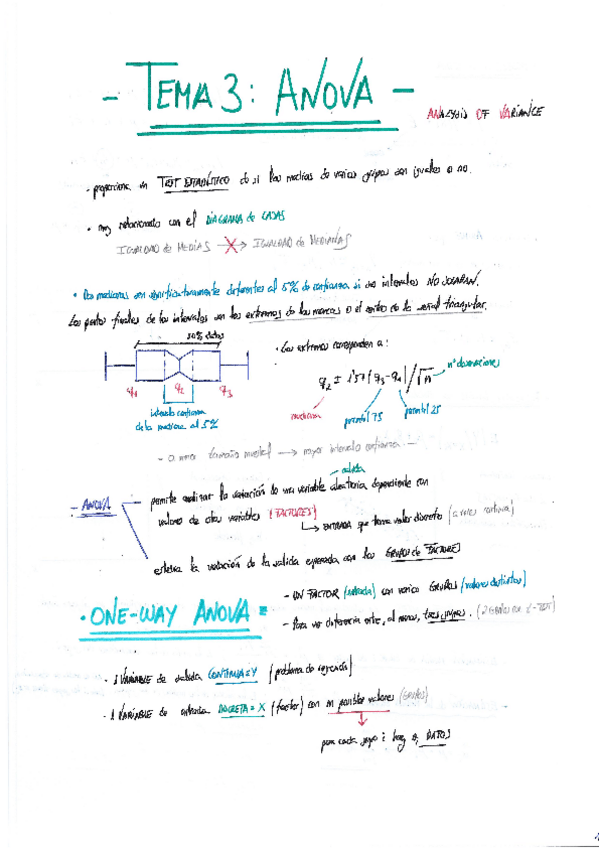 - TEMA 3: ANOVA -
ANALYSIS OF VARIANCE
· proporciona un TEST ESTADÍSTICO de si las medias de varios grupos son iguales o no.
· muy relacionado con el DIAGRAMA de CAJAS
IGUALDAD de MEDIAS → IGUALDAD de MEDIANAS
· Dos medianas son significativamente diferentes al 5% de confianza si los intervalos NO SOLAPAN.
Los puntos finales de los intervalos son los extremos de las marcas o el centro de la señal triangular.
50% datos
· Los extremos corresponden a:
q2 ± 1'57 (q3 - q1) / √n
nº observaciones
q1 q2 q3
mediana
percentil 75
percentil 25
intervalo confianza
de la mediana al 5%
- a menor tamaño muestral → mayor intervalo confianza -
salida
- ANOVA
permite analizar la variación de una variable aleatoria dependiente con
valores de otras variables (FACTORES)
↳ ENTRADA que toma valor discreto (a veces continua)
estima la variación de la salida esperada con los GRUPOS de FACTORES
· ONE-WAY ANOVA =
- UN FACTOR (entrada) con varios GRUPOS (valores distintos)
- Para ver diferencia entre, al menos, tres grupos. (2 GRUPOS por t-TEST)
· 1 VARIABLE de salida CONTINUA = Y (problema de regresión)
· 1 VARIABLE de entrada DISCRETA = X (factor) con m posibles valores (GRUPOS)
para cada grupo i hay DATOS